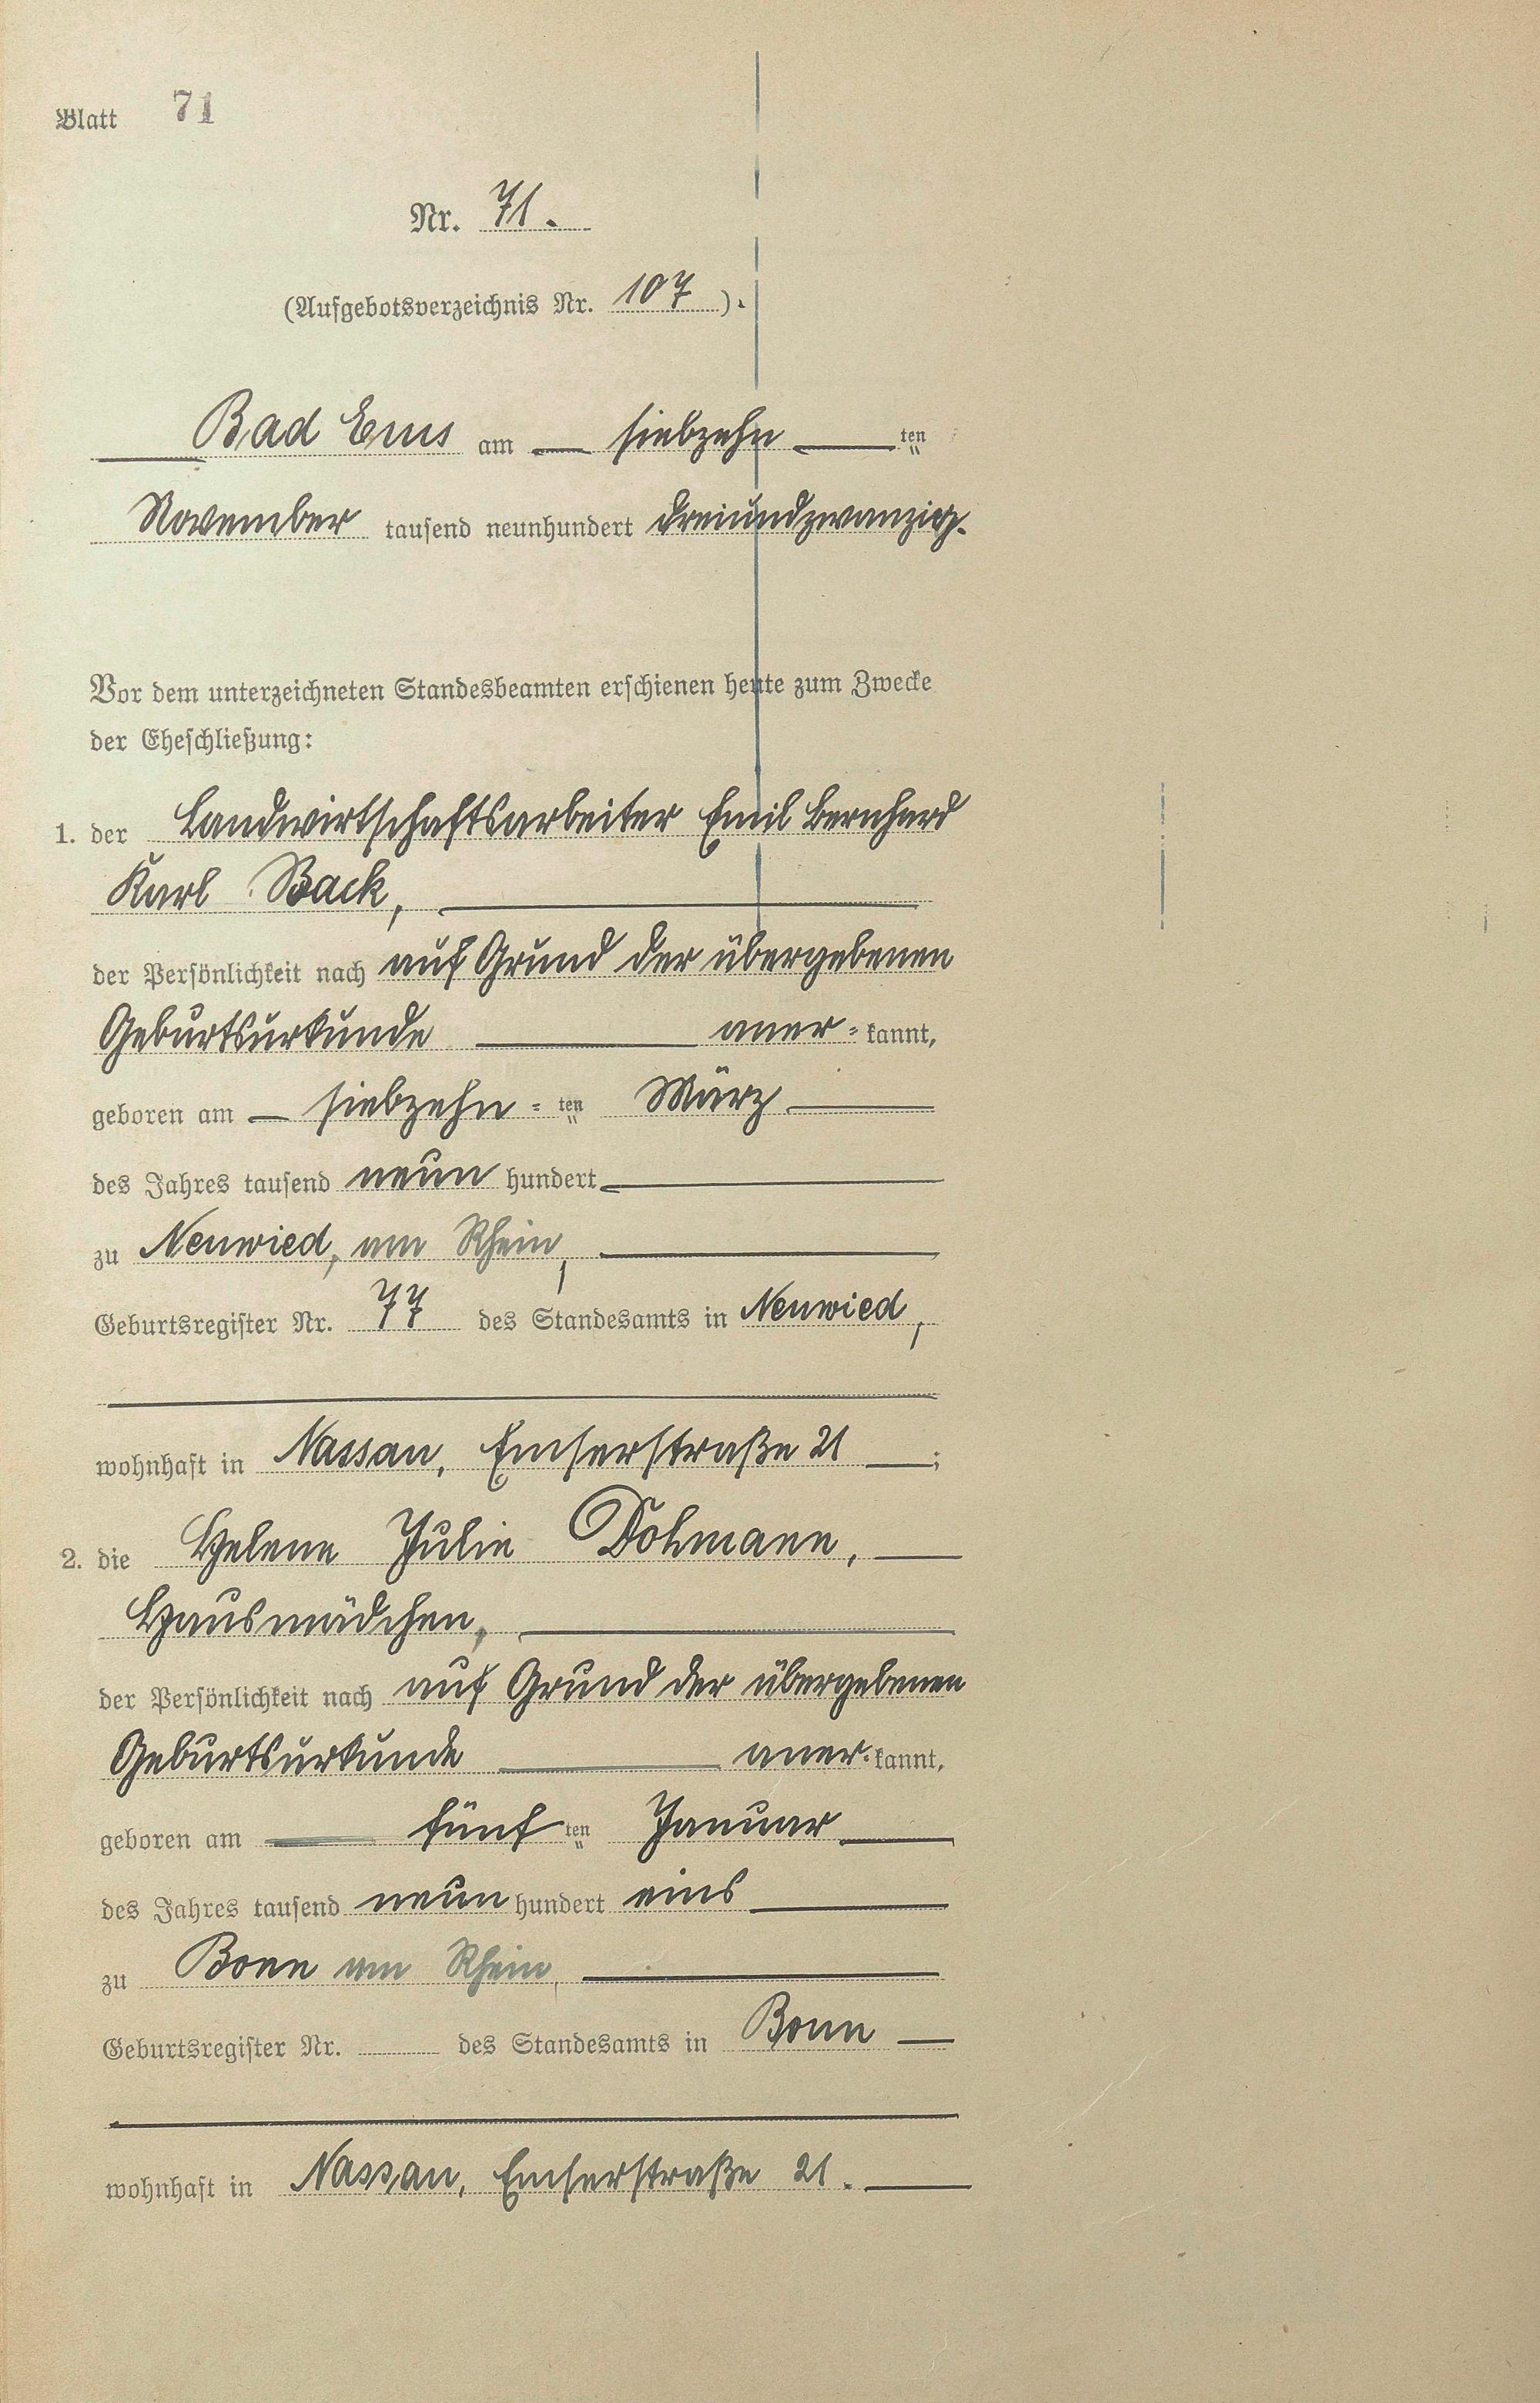 Blatt 71
Nr. 71.
(Aufgebotsverzeichnis Nr. 107).
Bad Ems am siebzehn ten
November tausend neunhundert dreiundzwanzig.
Vor dem unterzeichneten Standesbeamten erschienen heute zum Zwecke
der Eheschließung:
1. der Landwirtschaftsarbeiter Emil Bernhard
Karl Back,
der Persönlichkeit nach auf Grund der übergebenen
Geburtsurkunde aner= kannt,
geboren am siebzehn= ten März
des Jahres tausend neun hundert
zu Neuwied, am Rhein,
Geburtsregister Nr. 77 des Standesamts in Neuwied,
wohnhaft in Nassau, Emserstraße 21 ;
2. die Helene Julie Dohmann,
Hausmädchen,
der Persönlichkeit nach auf Grund der übergebenen
Geburtsurkunde aner= kannt,
geboren am fünf ten Januar
des Jahres tausend neun hundert eins
zu Bonn am Rhein,
Geburtsregister Nr. des Standesamts in Bonn
wohnhaft in Nassau, Emserstraße 21.